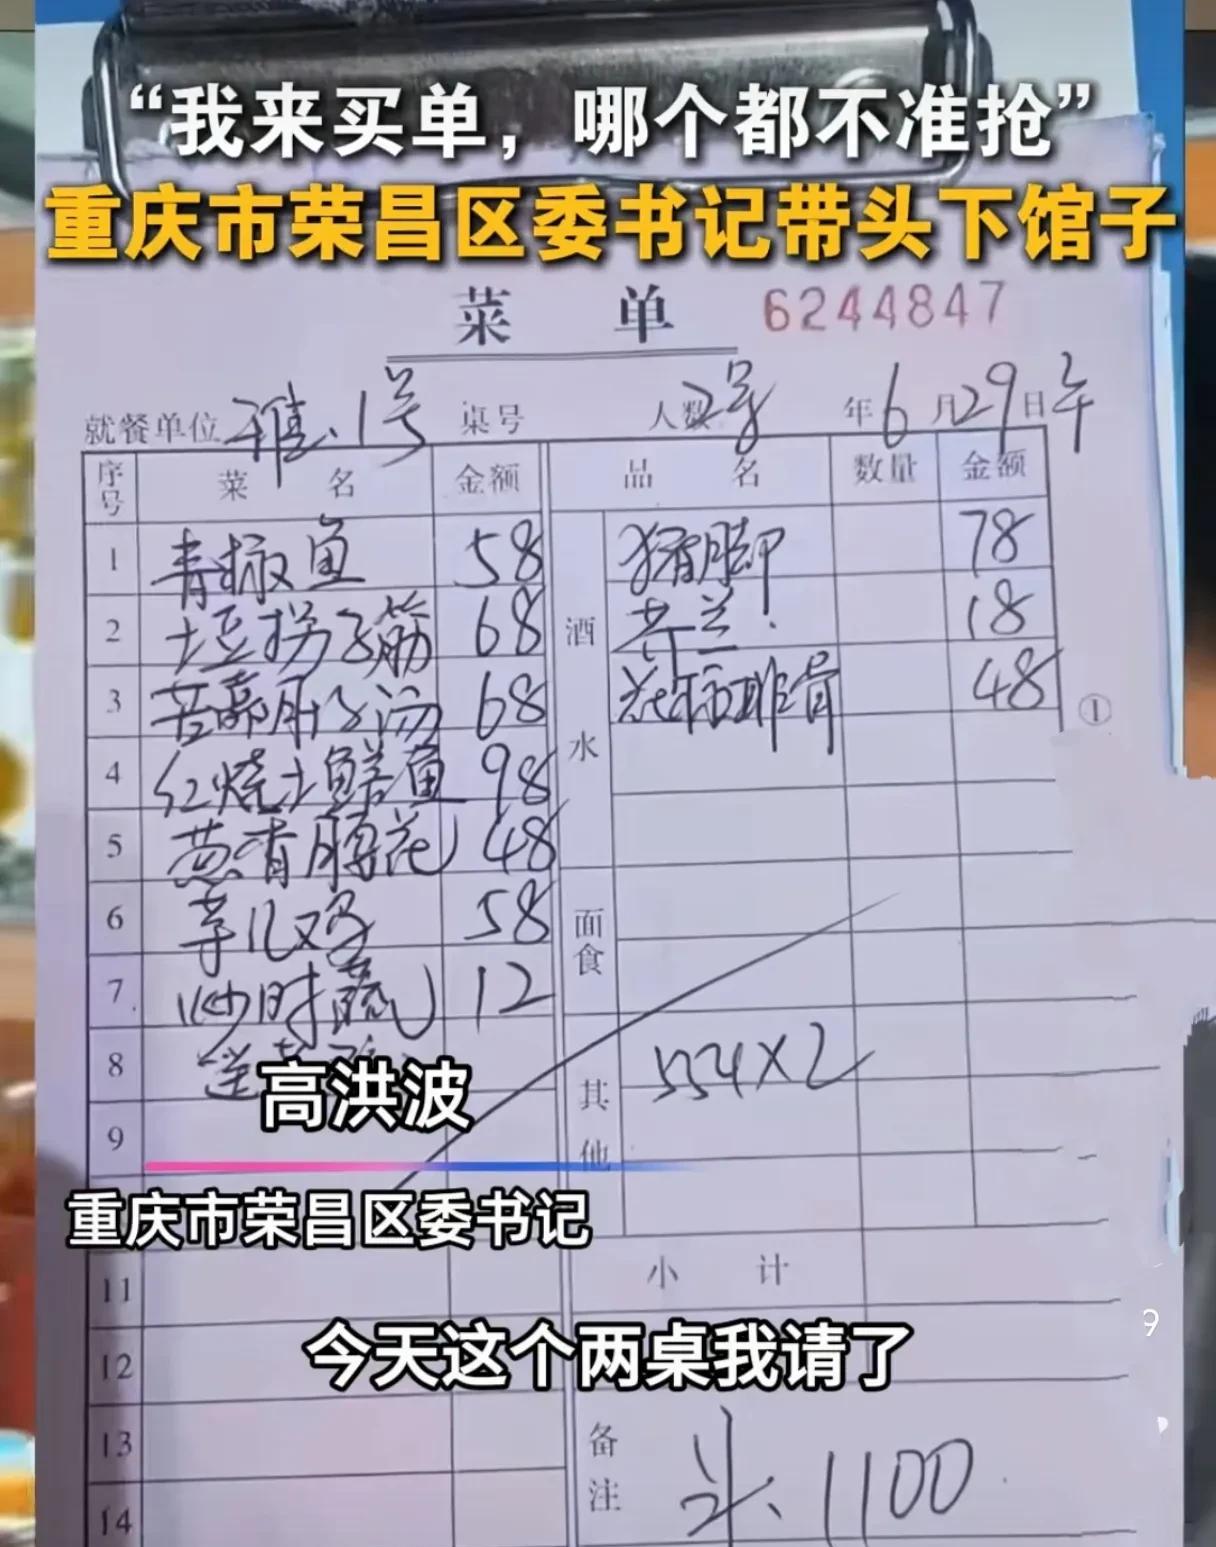 “我来买单，哪个都不准抢”
重庆市荣昌区委书记带头下馆子
菜 单 6244847
就餐单位 雅、1号 桌号 人数 2号 年6月29日午
序号 菜 名 金额 品 名 数量 金额
1 青椒鱼 58 猪脚 78
2 土豆拐子筋 68 酒 芥兰 18
3 苦藠肚子汤 68 排骨 48 ①
4 红烧土鳝鱼 98 水
5 葱香腰花 48
6 芋儿鸡 58 面食
7 炒时蔬 12
8 其他 554×2
高洪波
9
重庆市荣昌区委书记
11 小 计
12
今天这个两桌我请了
13 备注 实、1100
14